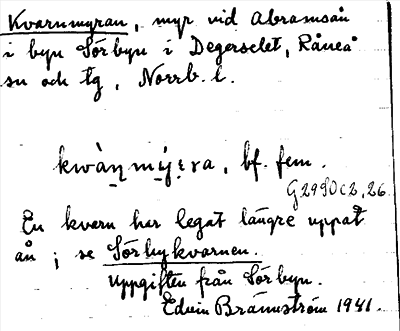 Kvarnmyran, myr vid Abramsån
i byn Sörbyn i Degerselet, Råneå
sn och tg, Norrb. l.
kwàn̥mý̀ra, bf. fem.
G2950c2,26
En kvarn har legat längre uppåt
ån; se Sörbykvarnen.
Uppgiften från Sörbyn.
Edvin Brännström 1941.